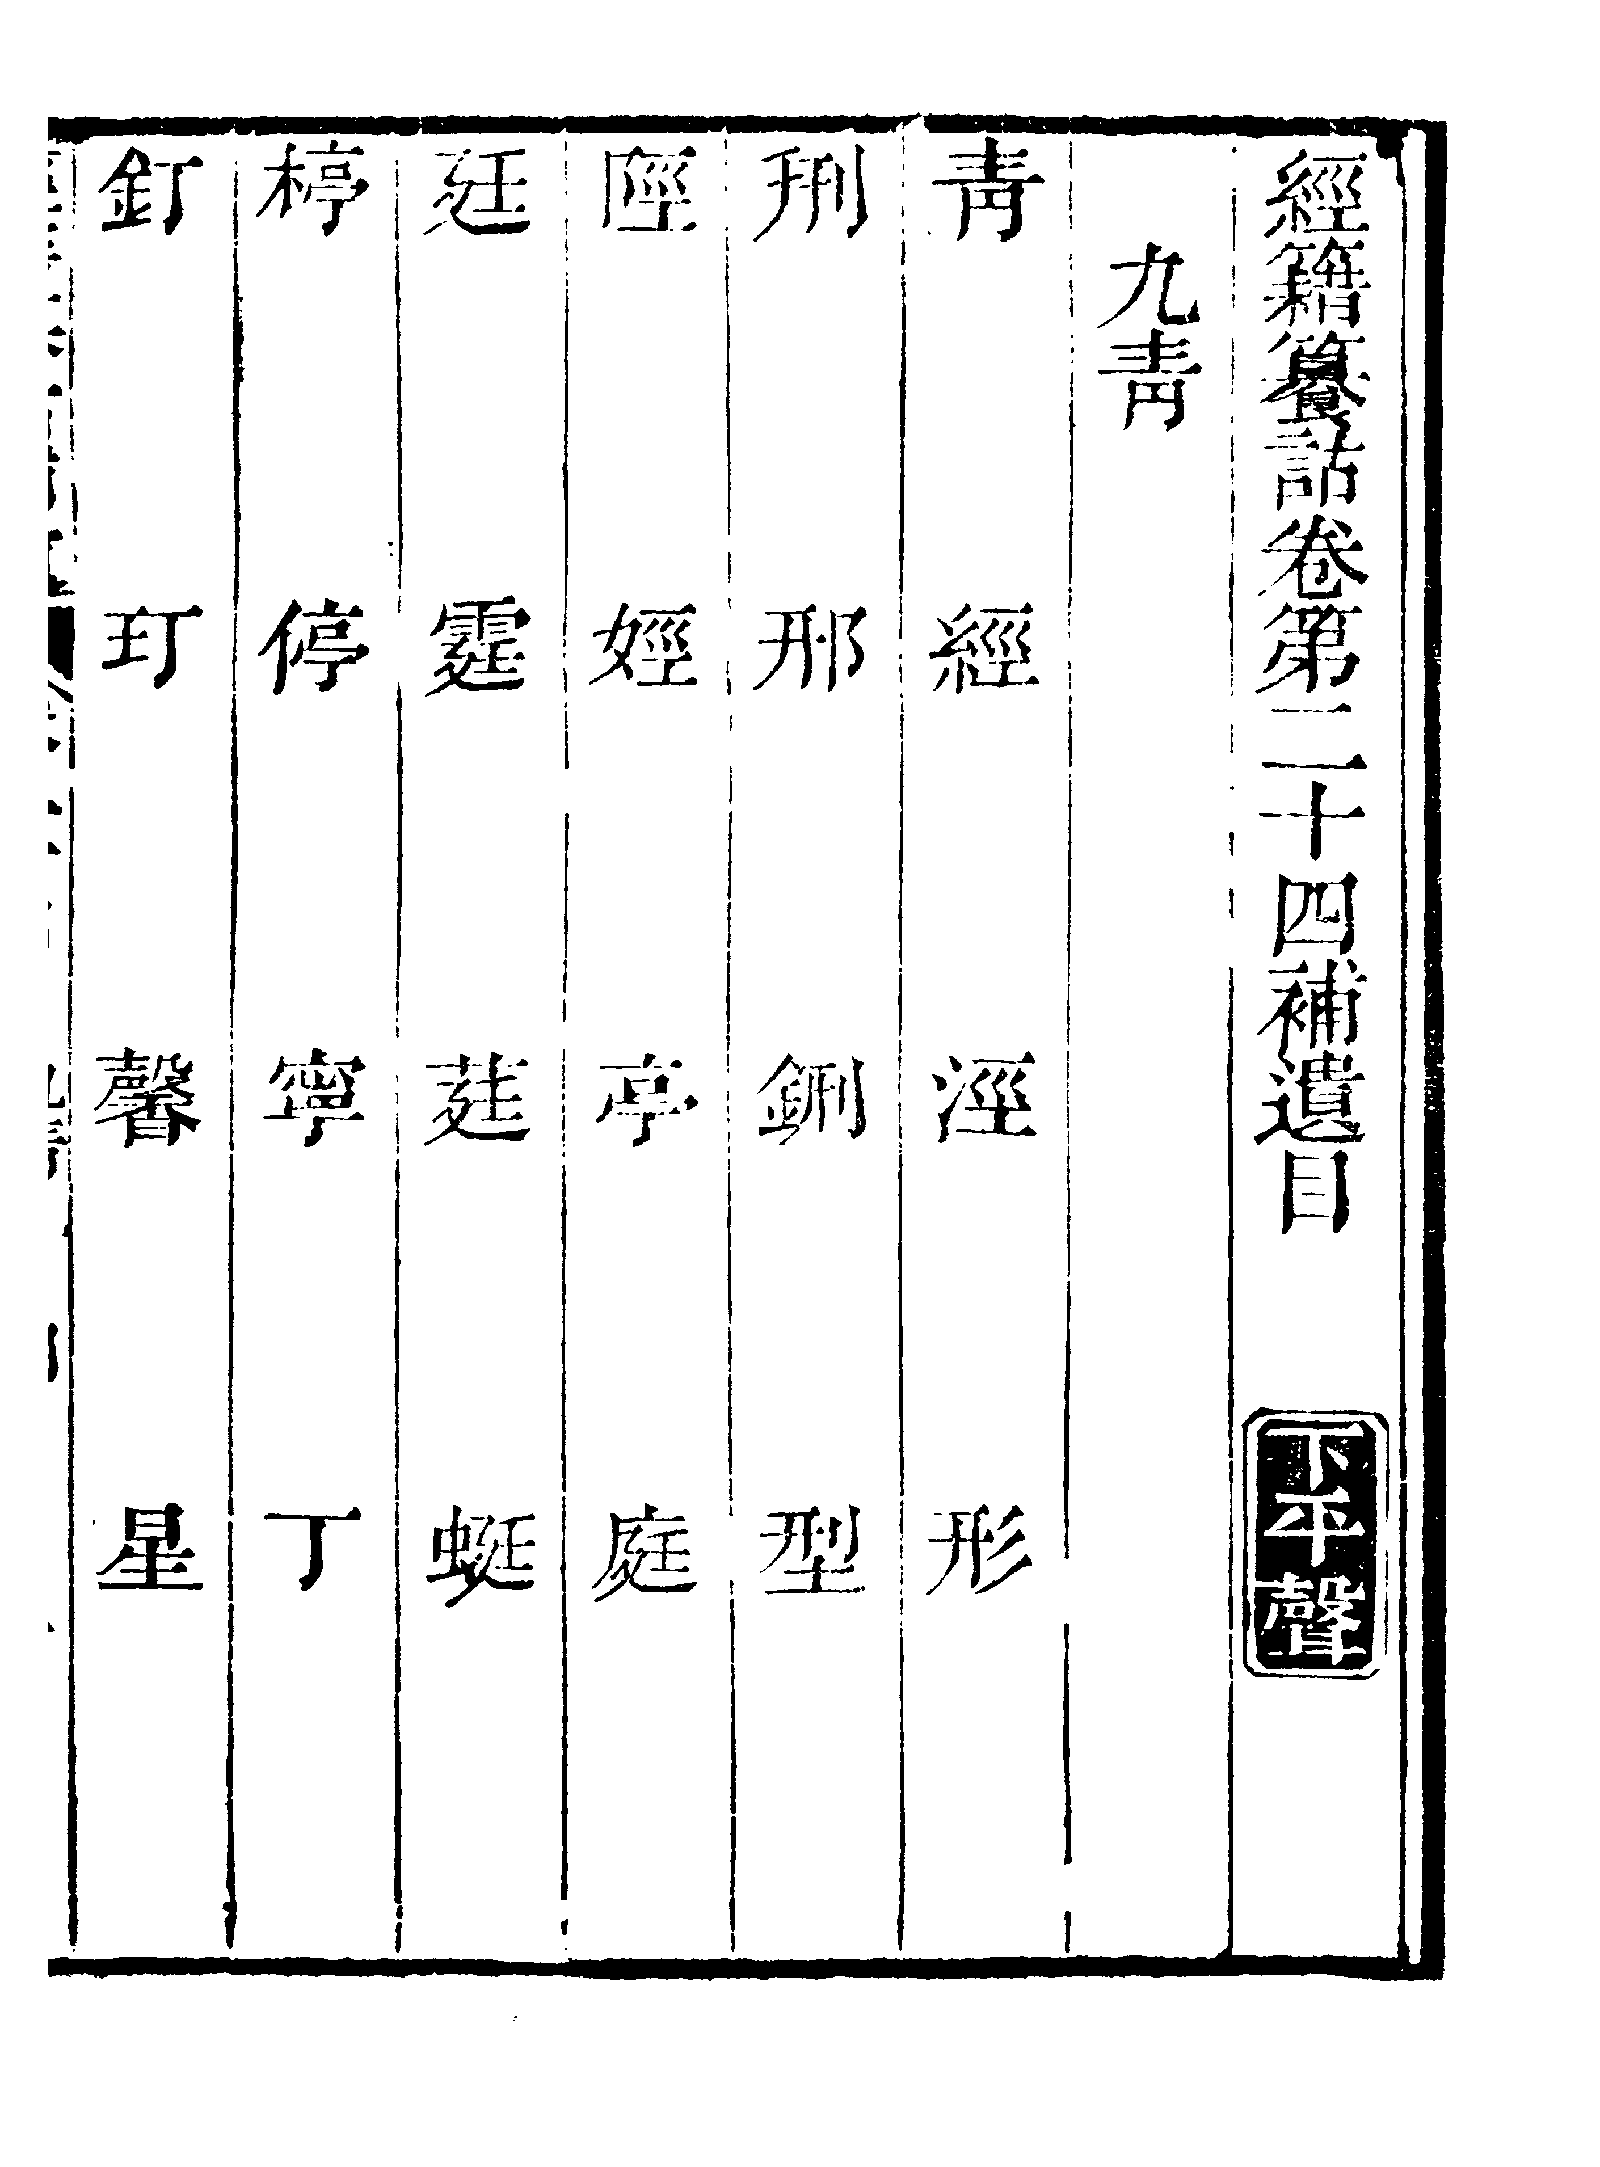 經籍籑詁卷第二十四補遺目 下平聲
九青
青 經 涇 形
刑 邢 鉶 型
陘 娙 亭 庭
廷 霆 莛 蜓
楟 停 寧 丁
釘 玎 馨 星